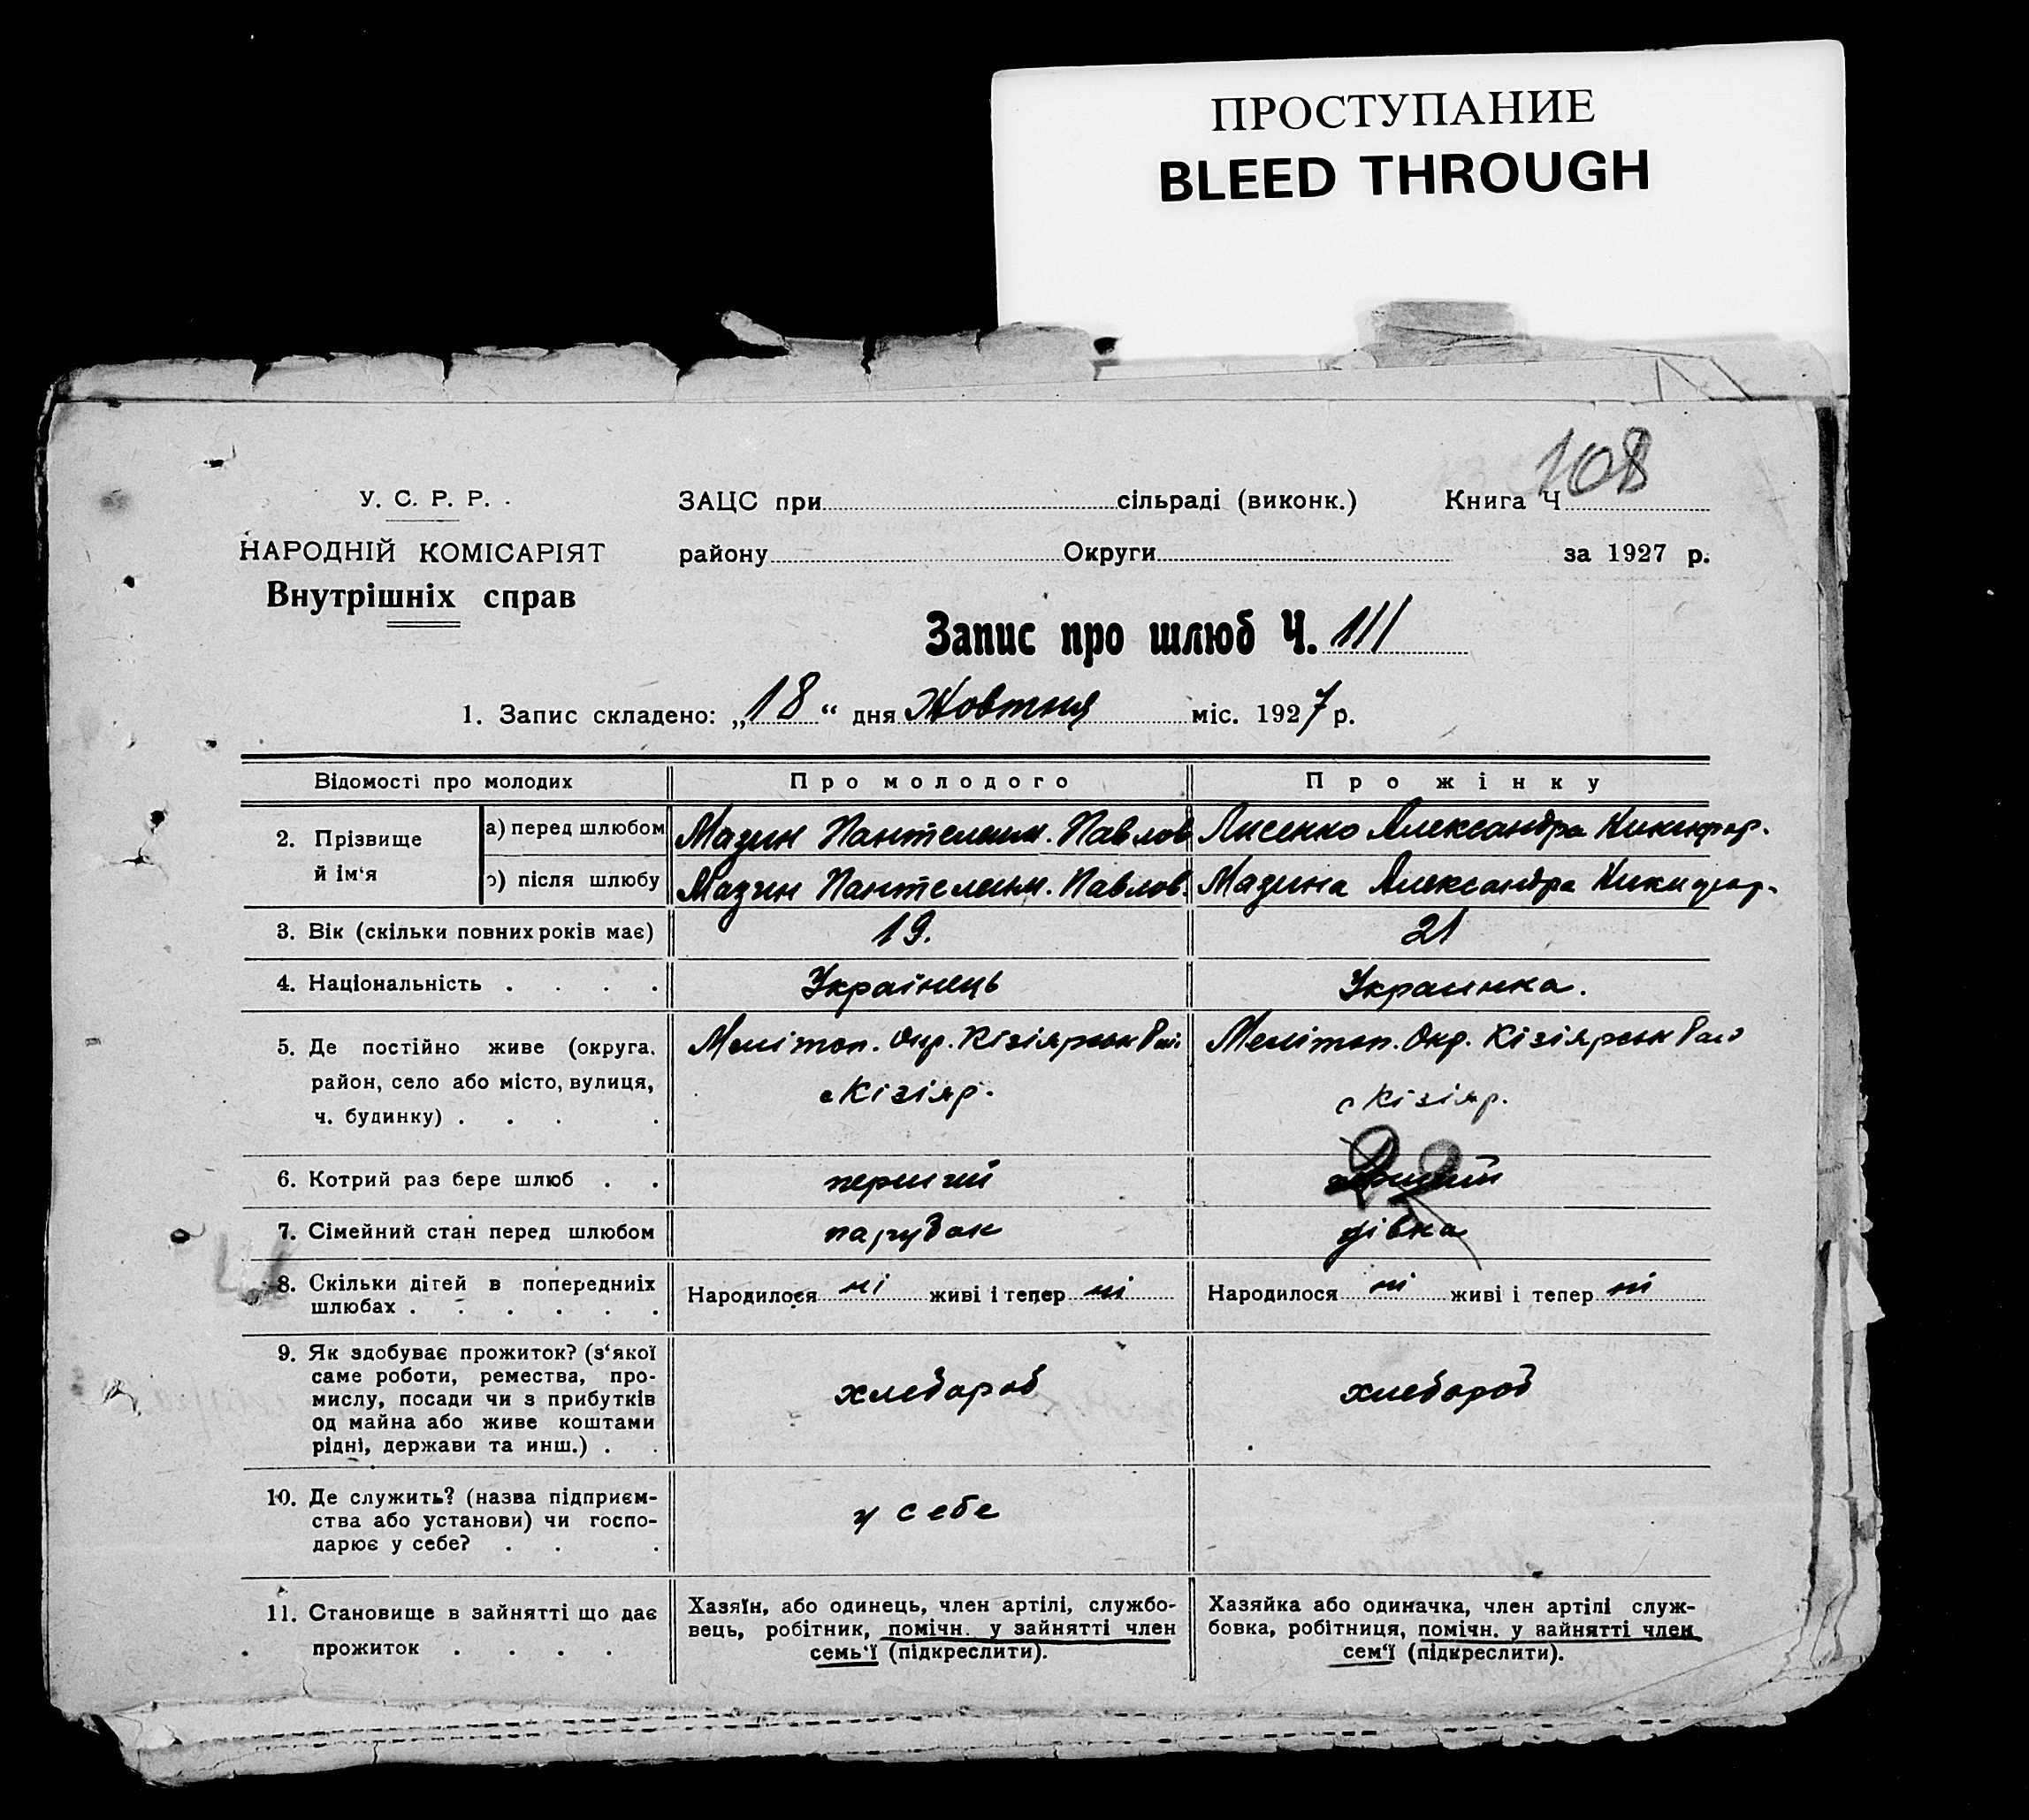 ПРОСТУПАНИЕ
BLEED THROUGH
108
У. С. Р. Р.
НАРОДНІЙ КОМІСАРІЯТ
Внутрішніх справ
ЗАЦС при сільраді (виконк.) Книга Ч
району Округи за 1927 р.
Запис про шлюб Ч. 111
1. Запис складено: „18“ дня Жовтня міс. 1927 р.
Відомості про молодих Про молодого Про жінку
2. Прізвище й ім‘я
а) перед шлюбом Мазин Пантелеим. Павлов Лисенко Александра Никифор.
б) після шлюбу Мазин Пантелеим. Павлов. Мазина Александра Никифор.
3. Вік (скільки повних років має) 19. 21
4. Національність . . . . Українець Украинка.
5. Де постійно живе (округа. район, село або місто, вулиця, ч. будинку) . . . .
Мелітоп. Окр. Кізіярськ Рай.
с Кізіяр.
Мелітоп. Окр. Кізіярськ Рай
с Кізіяр.
6. Котрий раз бере шлюб . . перший перший
7. Сімейний стан перед шлюбом парубок дівка
8. Скільки дітей в попередніх шлюбах . . . . . .
Народилося ні живі і тепер ні
Народилося ні живі і тепер ні
9. Як здобуває прожиток? (з‘якої
саме роботи, ремества, про-
мислу, посади чи з прибутків
од майна або живе коштами
рідні, держави та инш.) . .
хлебороб хлебороб
10. Де служить? (назва підприєм-
ства або установи) чи госпо-
дарює у себе? . . .
у себе
11. Становище в зайнятті що дає
прожиток . . . .
Хазяїн, або одинець, член артілі, службо-
вець, робітник, помічн. у зайнятті член
семь‘ї (підкреслити).
Хазяйка або одиначка, член артілі служ-
бовка, робітниця, помічн. у зайнятті член
сем‘ї (підкреслити).